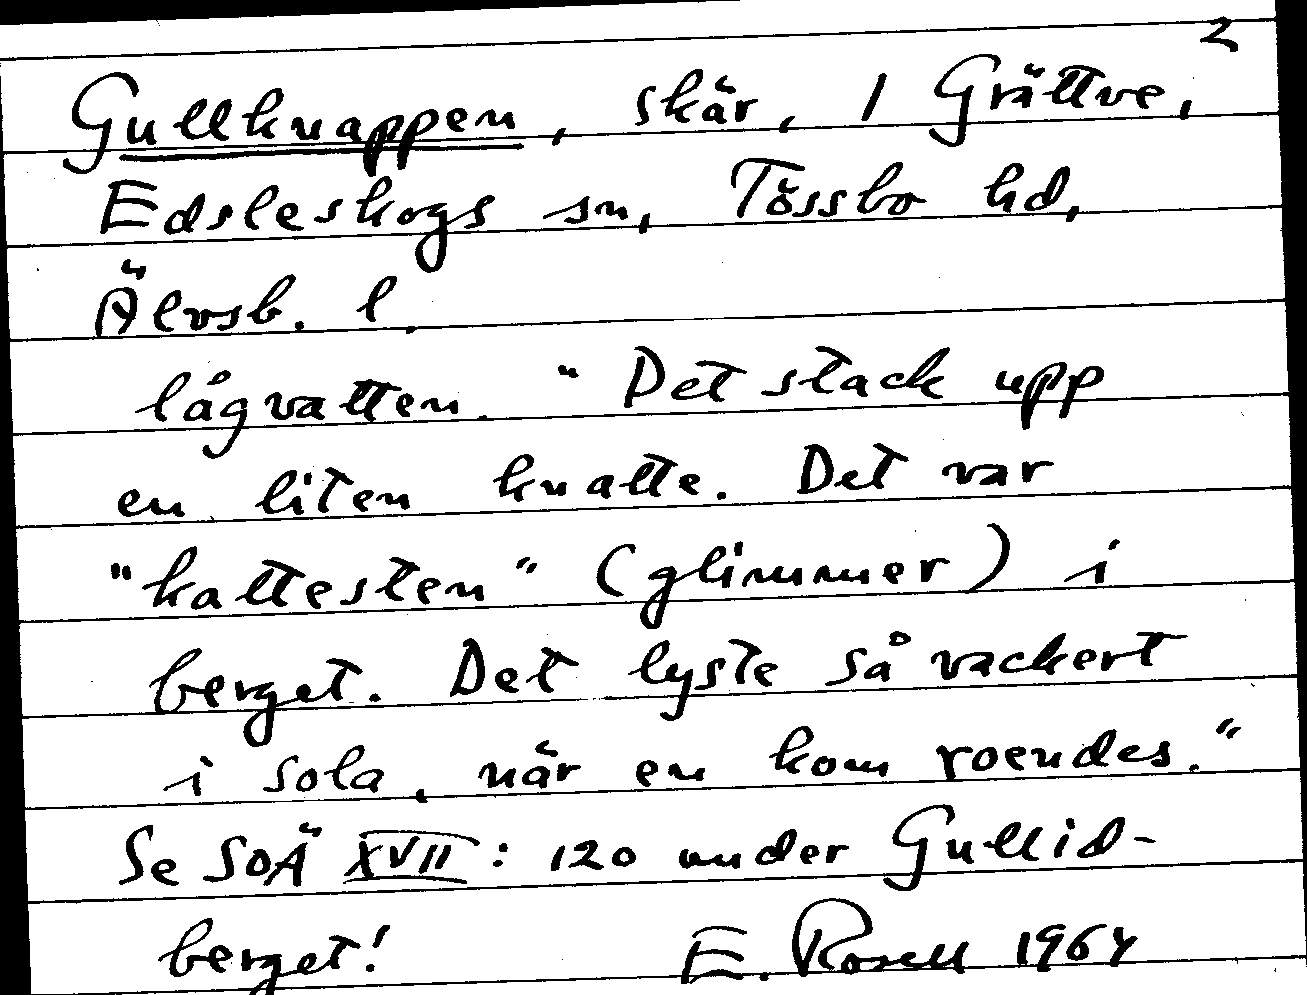 2
Gullknappen, skär, 1 Grättve,
Edsleskogs sn, Tössbo hd,
Älvsb. l.
lågvatten. "Det stack upp
en liten knatte. Det var
"kattesten" (glimmer) i
berget. Det lyste så vackert
i sola, när en kom roendes."
Se SOÄ XVII: 120 under Gullid-
berget! E. Rosell 1964